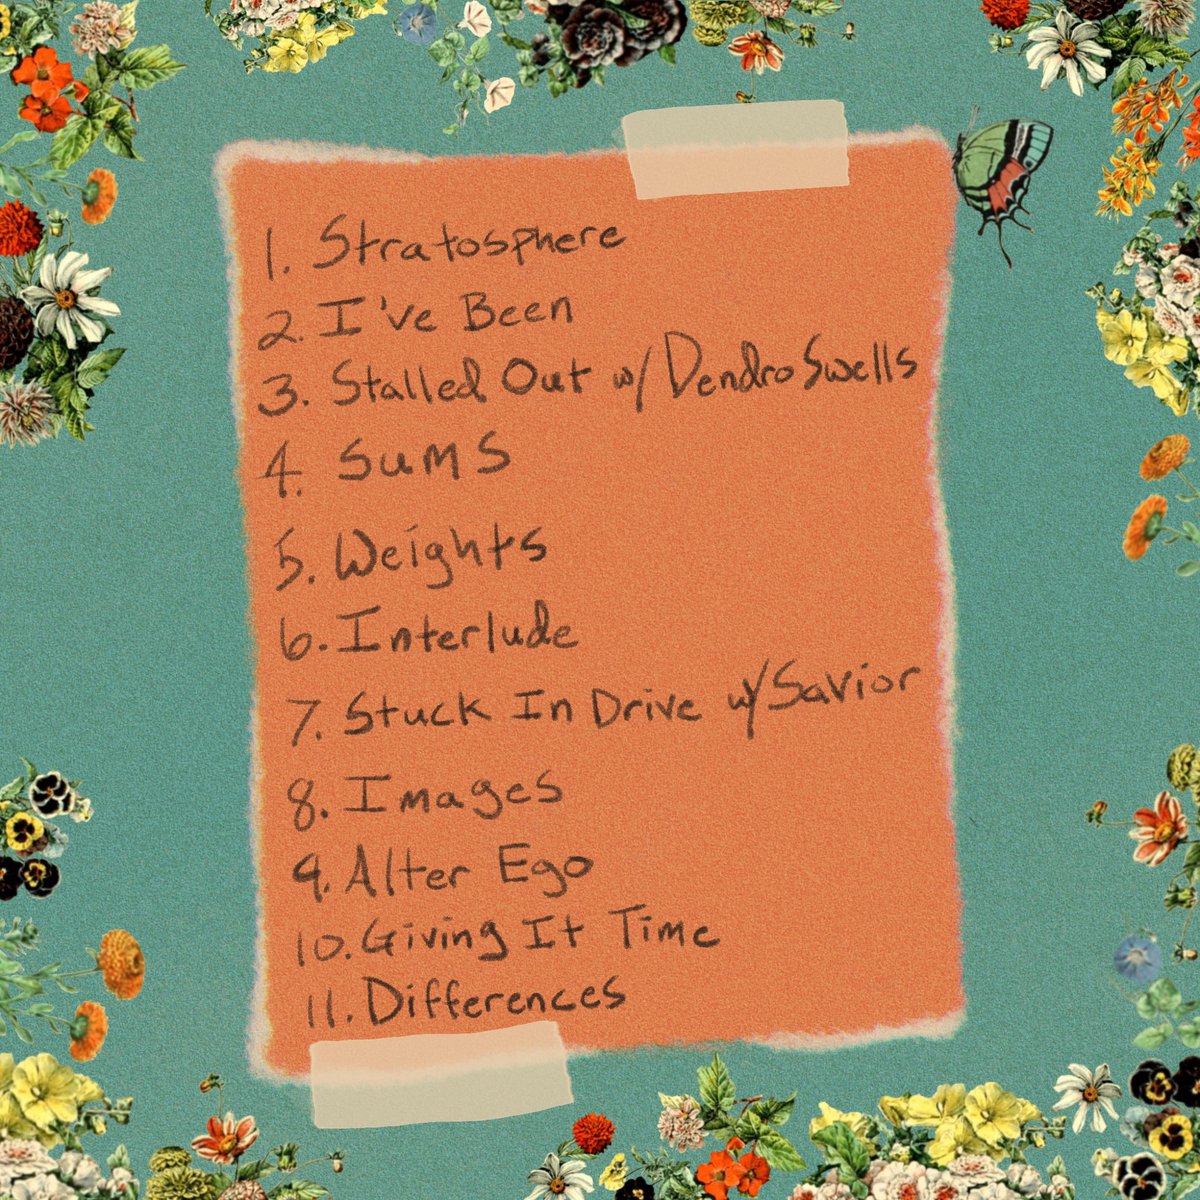 1. Stratosphere
2. I've Been
3. Stalled Out w/ Dendro Swells
4. Sums
5. Weights
6. Interlude
7. Stuck In Drive w/ Savior
8. Images
9. Alter Ego
10. Giving It Time
11. Differences